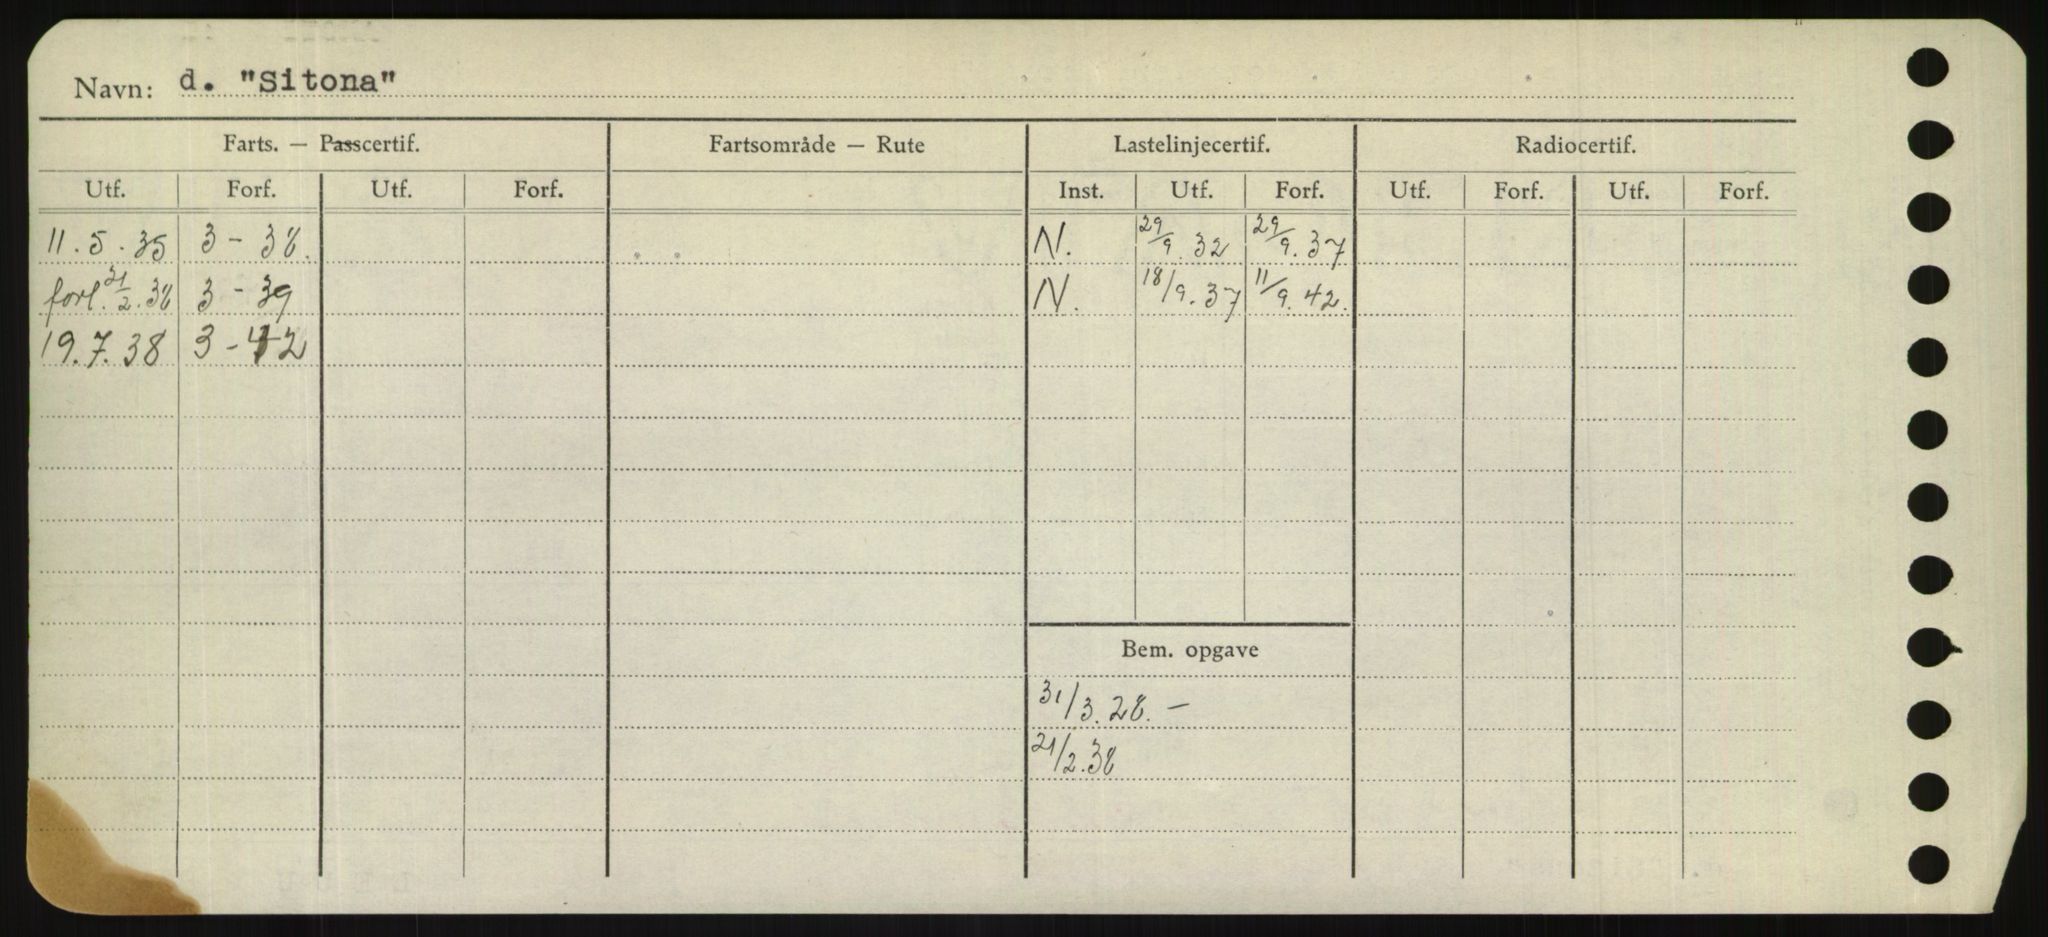 Navn: d. "Sitona"
Farts. — Passcertif. Fartsområde — Rute Lastelinjecertif. Radiocertif.
Utf. Forf. Utf. Forf. Inst. Utf. Forf. Utf. Forf. Utf. Forf.
11.5.35 3-38. N. 29/9.32 29/9.37
forl. 21/2.38 3-39 N. 18/9.37 11/9.42.
19.7.38 3-42
Bem. opgave
31/3.28.-
21/2.38